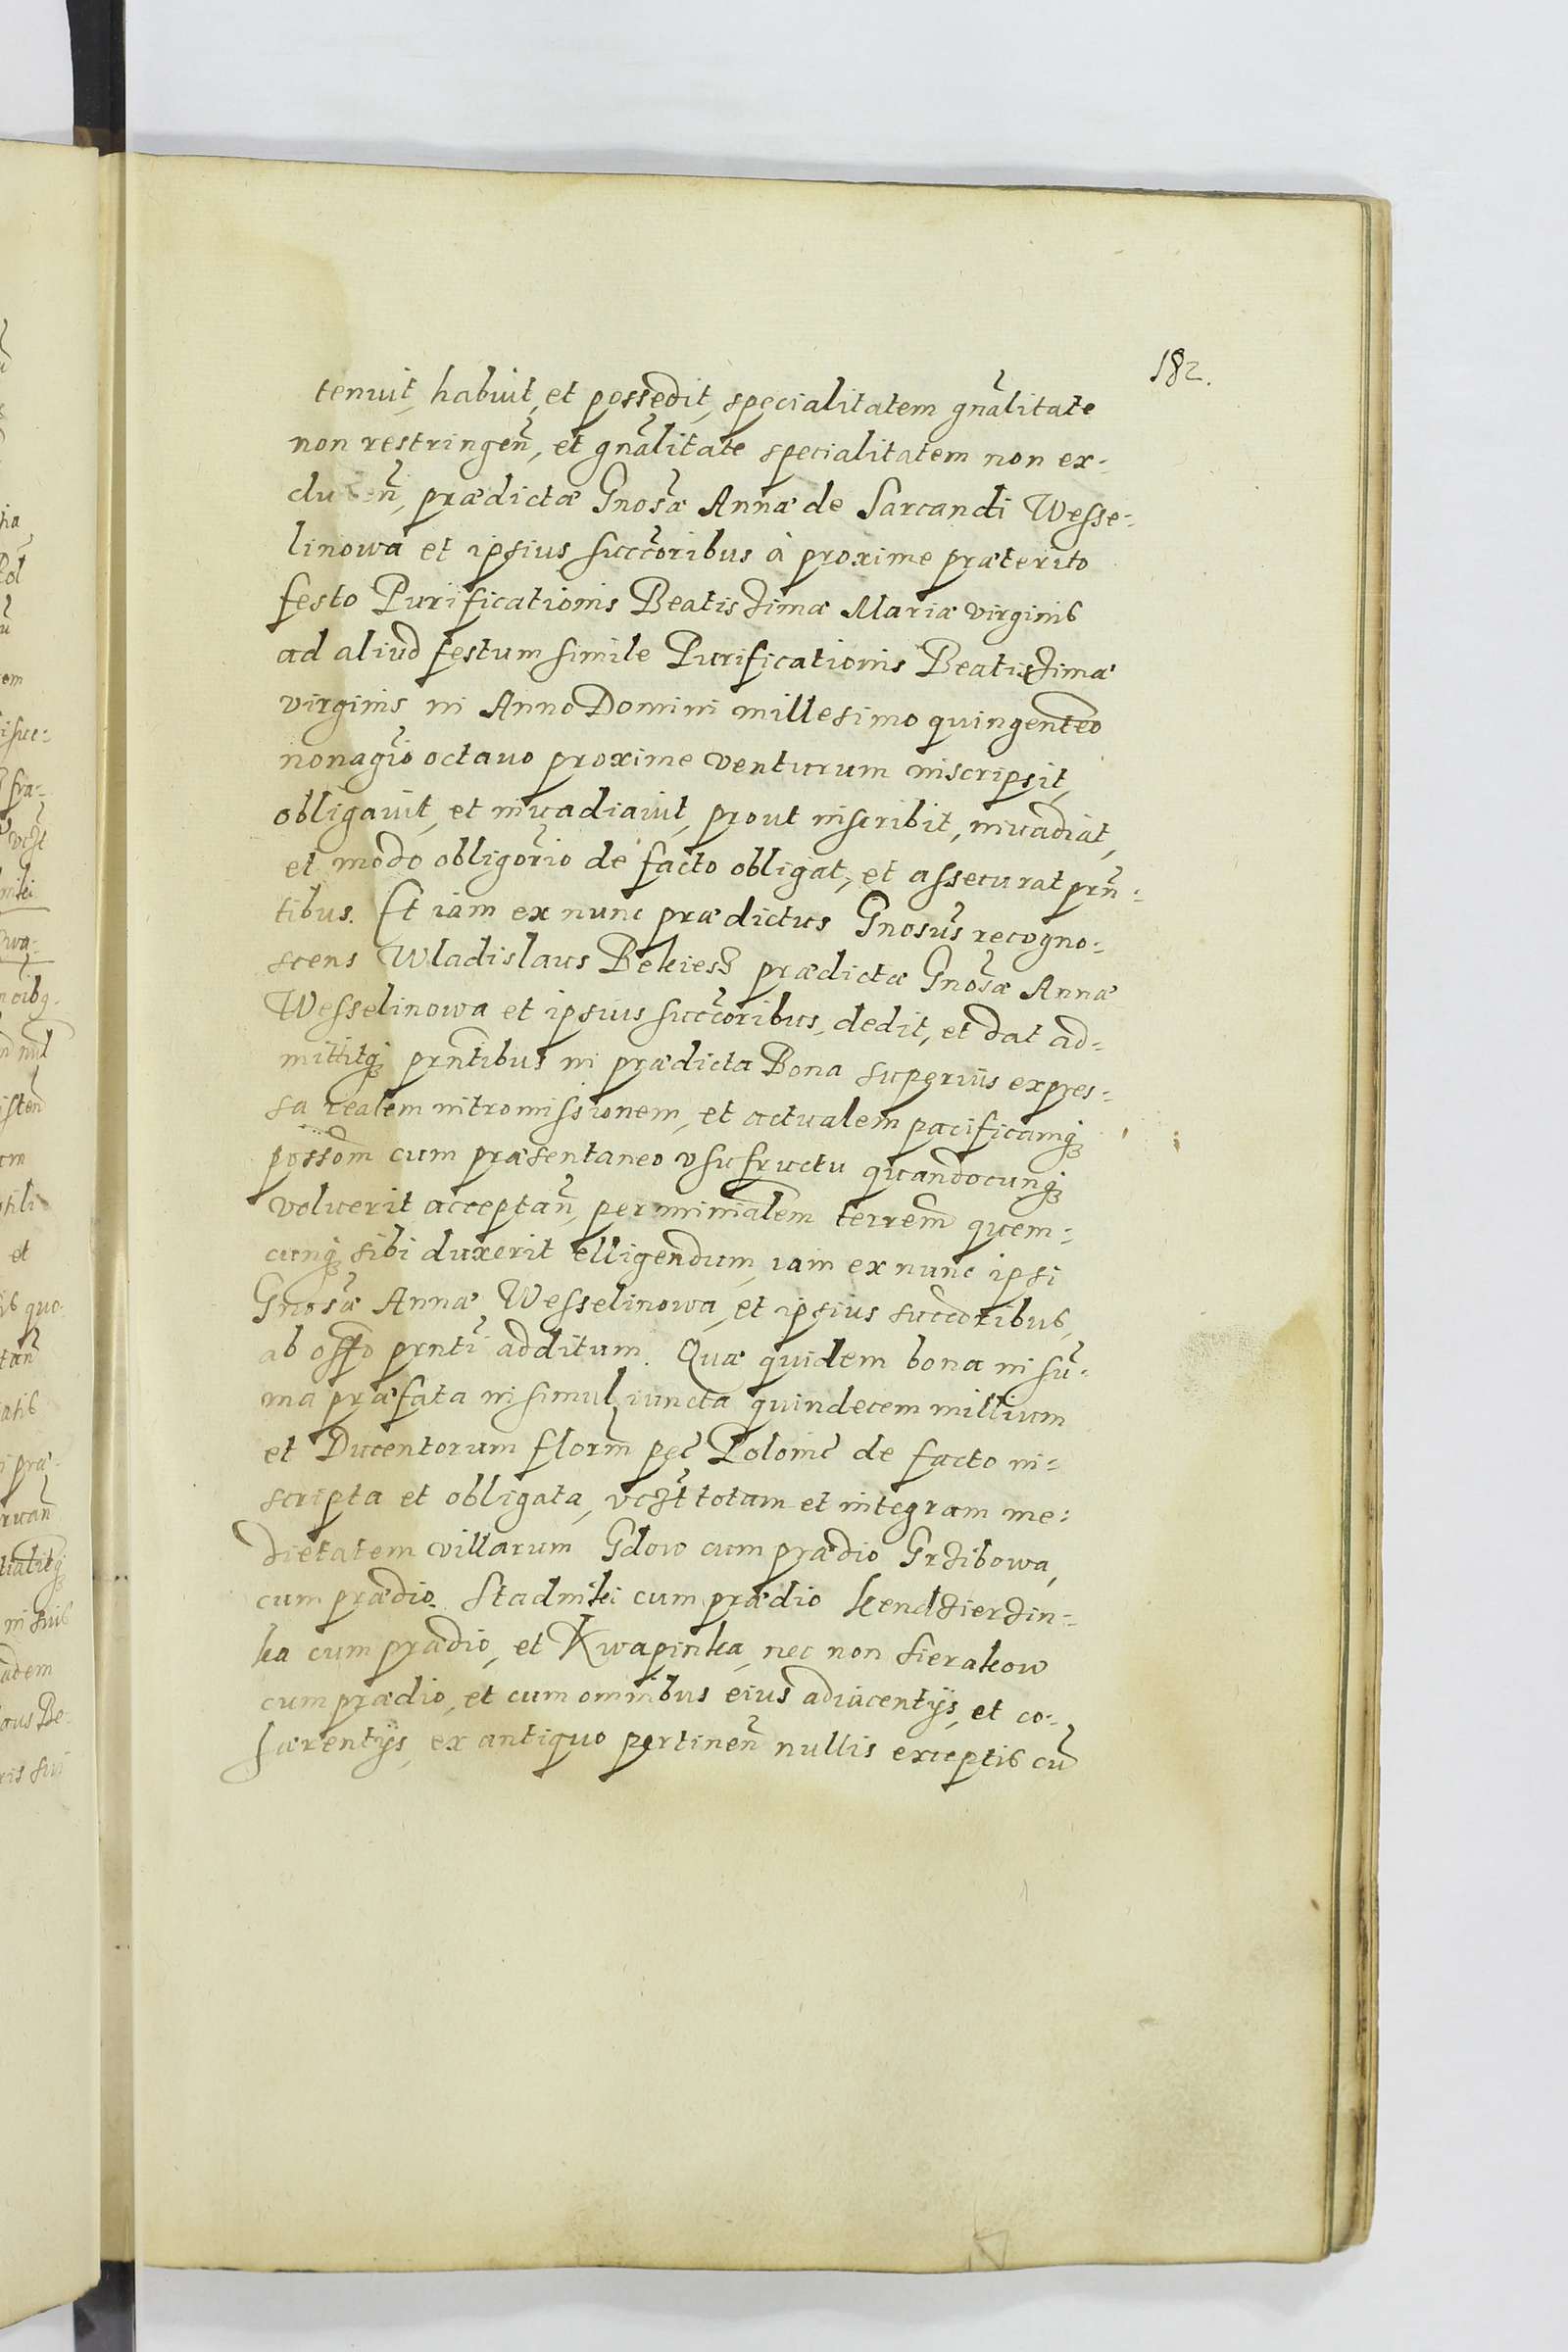 182.
tenuit, habuit, et possedit, specialitatem gñalitate
non restringeñ, et gñalitate specialitatem non ex-
cludeñ, prædictæ Gnosæ Annæ de Sarcandi Wesse-
linowa et ipsius succoribus à proxime præterito
festo Purificationis Beatissimæ Mariæ virginis
ad aliud festum simile Purificationis Beatissimæ
virginis in Anno Domini millesimo quingenteo
nonagio octauo proxime venturum inscripsit,
obligauit, et inuadiauit, prout inscribit, inuadiat,
et modo obligorio de facto obligat, et assecurat prñ-
tibus. Et iam ex nunc prædictus Gnosus recogno-
scens Wladislaus Bekiesz prædictæ Gnosæ Annæ
Wesselinowa et ipsius succoribus, dedit, et dat ad-
mittitq; prntibus in prædicta Bona superius expres-
sa realem intromissionem, et actualem pacificamq;
possom̃ cum præsentaneo vsufructu quandocunq;
voluerit acceptañ, per minialem terrem quem-
cunq; sibi duxerit elligendum, iam ex nunc ipsi
Gnosæ Annæ Wesselinowa, et ipsius succoribus,
ab offo prnti additum. Quæ quidem bona in sum̃-
ma præfata in simul iuncta quindecem millium
et Ducentorum florm̃ pec Polonic de facto in-
scripta et obligata, vczt totam et integram me-
dietatem villarum Gdow cum prædio Grzibowa,
cum prædio. Stadniki cum prædio kendzierzin-
ka cum prædio, et Kwapinka, nec non Sierakow
cum prædio, et cum omnibus eius adiacentijs, et co-
hærentijs, ex antiquo pertineñ nullis exceptis cũ